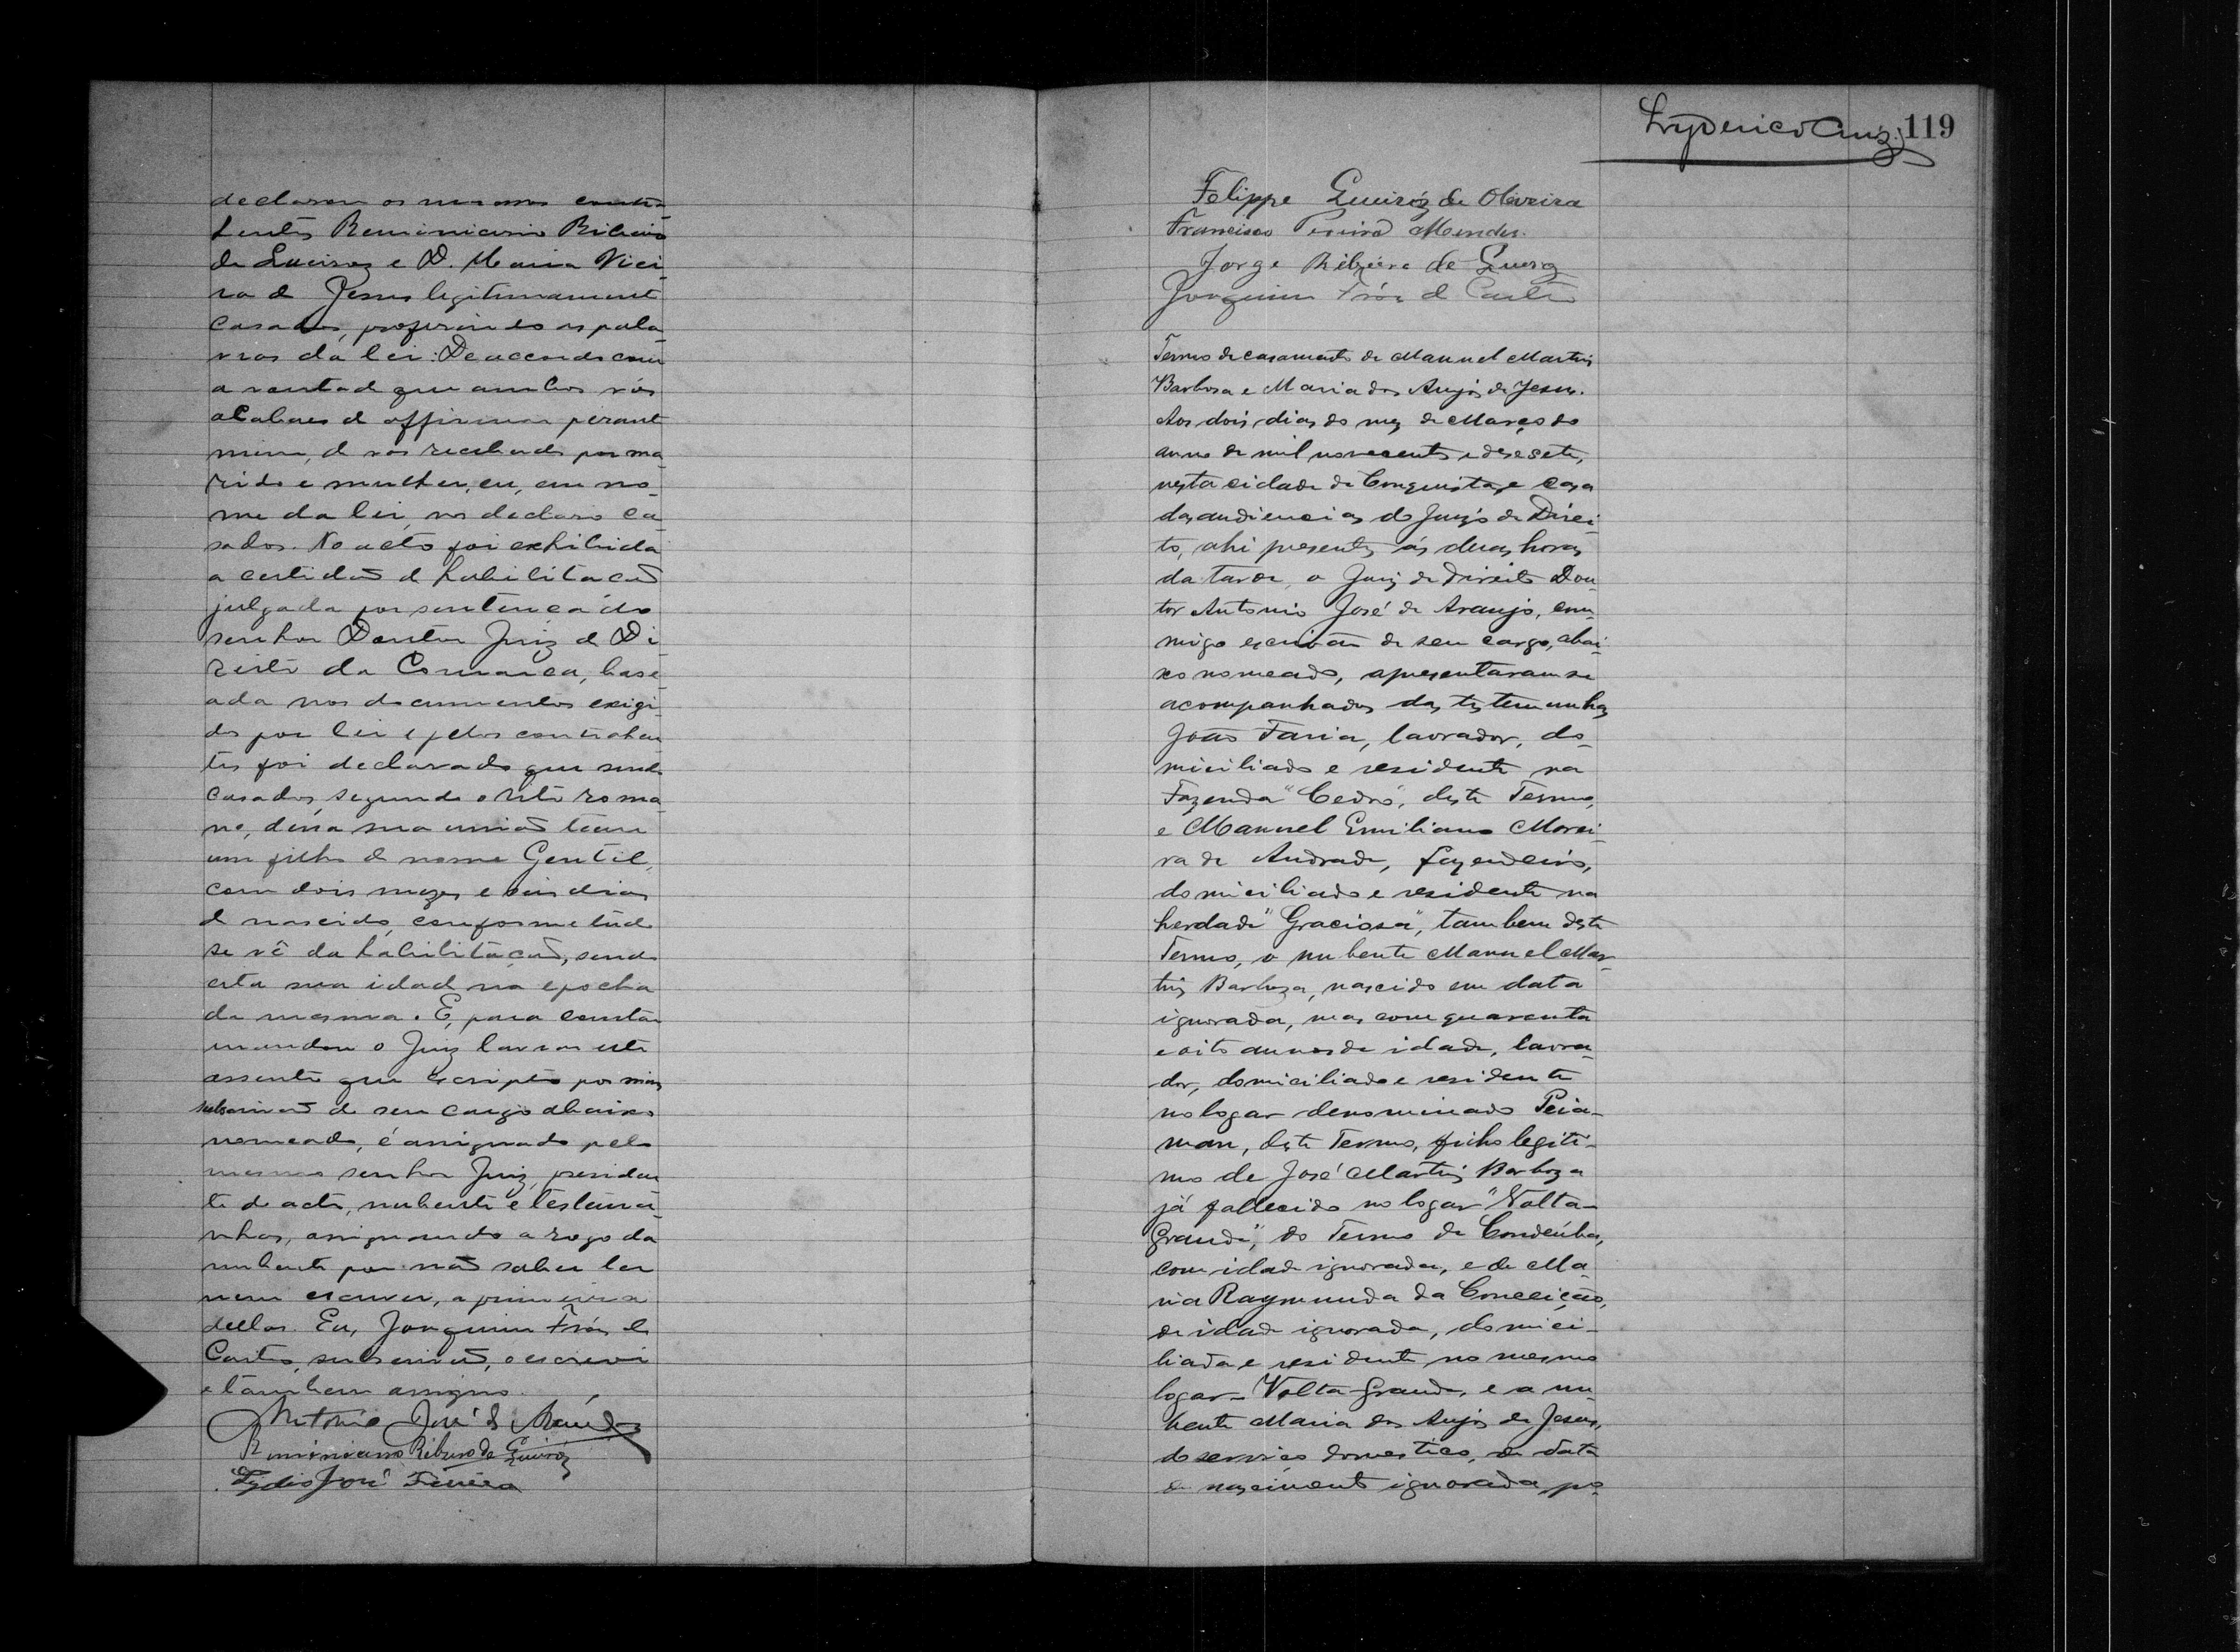 declarou os mesmos contra-
hentes Reminiciano Ribeiro
de Queiroz e D. Maria Viei-
ra de Jesus legitimamente
casados, proferindo as pala-
vras da lei: De accordo com
a vontade que ambos vós
acabaes de affirmar perante
mim, de vos receberdes por ma-
rido e mulher, eu, em no-
me da lei, vos declaro ca-
sados. No acto foi exhibida
a certidão de habilitacão
julgada por sentença do
senhor Doutor Juiz de Di-
reito da Comarca, base-
ada nos documentos exigi-
dos por lei e pelos contrahen-
tes foi declarado que sendo
casados, segundo o rito roma-
no, dessa sua união teem
um filho de nome Gentil,
com dois mezes e seis dias
de nascido, conforme tudo
se vê da habilitação, sendo
esta sua idade na epocha
da mesma. E, para constar
mandou o Juiz lavrar este
assento que escripto por mim
subscrivão de seu cargo abaixo
nomeado, é assignado pelo
mesmo senhor Juiz, presiden-
te do acto, nubente e testemu-
nhas, assignando a rogo da
nubente por não saber ler
nem escrever, a primeira
dellas. Eu, Joaquim Fróes de
Castro, subscrivão, o escrevi
e tambem assigno.
Antonio José de Araujo
Reminiciano Ribeiro de Queiróz
Lydio José Ferreira
Lyderico Cruz 119
Felippe Queiróz de Oliveira
Francisco Pereira Mendes.
Jorge Ribeiro de Queiroz
Joaquim Fróes de Castro
Termo de casamento de Manuel Martins
Barbosa e Maria dos Anjos de Jesus.
Aos dois dias do mez de Março do
anno de mil novecentos e desesete,
nesta cidade de Conquista, e casa
das audiencias do Juizo de Direi-
to, ahi presentes ás duas horas
da tarde, o Juiz de Direito Dou-
tor Antonio José de Araujo, com-
migo escrivão de seu cargo, abai-
xo nomeado, apresentaram-se
acompanhados das testemunhas
João Faria, lavrador, do-
miciliado e residente na
Fazenda "Cedro", deste Termo,
e Manuel Emiliano Morei-
ra de Andrade, fazendeiro,
domiciliado e residente na
herdade "Graciosa", tambem deste
Termo, o nubente Manuel Mar-
tins Barboza, nascido em data
ignorada, mas com quarenta
e oito annos de idade, lavra-
dor, domiciliado e residente
no logar denominado Peia-
man, deste Termo, filho legiti-
mo de José Martins Barboza
já fallecido no logar "Volta-
Grande", do Termo de Condeúba,
com idade ignorada, e de Ma-
ria Raymunda da Conceição,
de idade ignorada, domici-
liada e residente no mesmo
logar - Volta-Grande, e a nu-
bente Maria dos Anjos de Jesus,
do serviço domestico, de data
de nascimento ignorada, po-